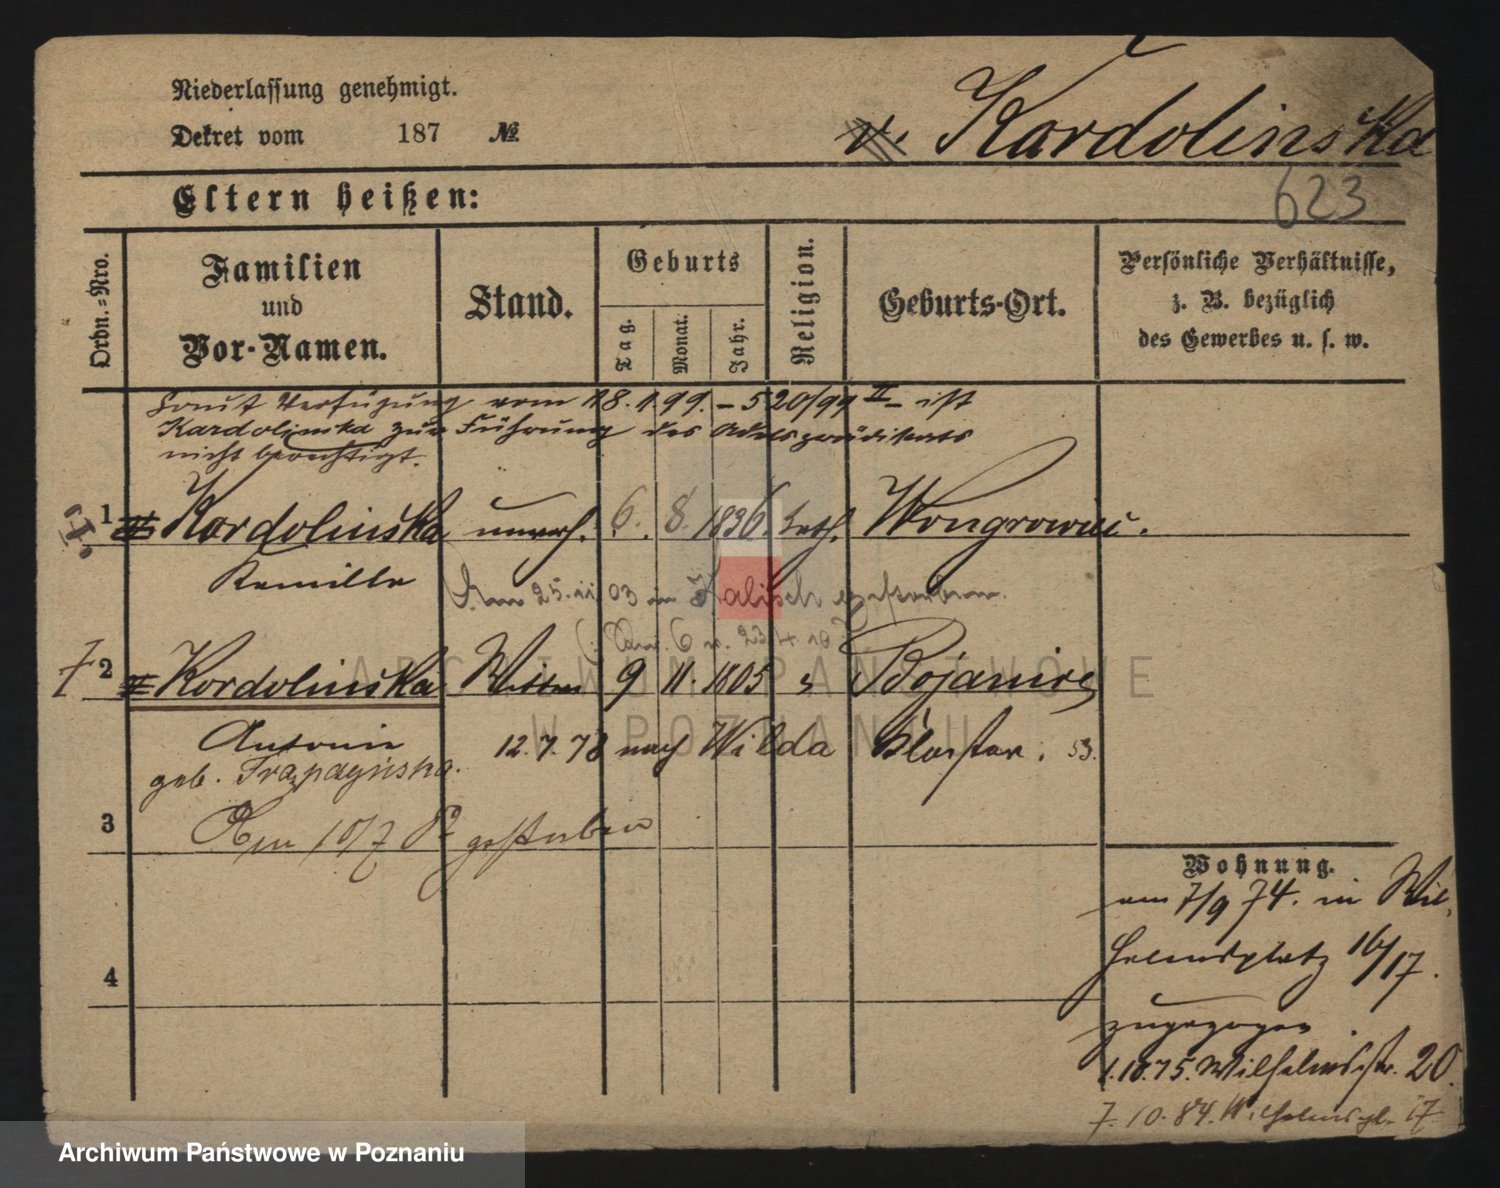 Niederlassung genehmigt.
Dekret vom 187 №
v. Kardolinska
623
Eltern heißen:
Ordn.=Nro.
Familien und Vor-Namen.
Stand.
Geburts
Tag.
Monat.
Jahr.
Religion.
Geburts-Ort.
Persönliche Verhältnisse, z. B. bezüglich des Gewerbes u. s. w.
laut Verfügung vom 18.1.99. – 520/99 II – ist
Kardolinska zur Führung des Adelsprädikats
nicht berechtigt.
1 v. Kardolinska unverh. 6. 8. 1836. kath. Wongrowiec.
Kamilla
Am 25. 11 03 in Kalisch gestorben.
2 v. Kardolinska Wittwe 9 11. 1805 Bojanice
Antonie 12.7.78 nach Wilda Kloster. 53.
geb. Trąpczyńska.
3 Am 10/7 82 gestorben
4
Wohnung.
am 7/9 74. in Wil-
helmsplatz 16/17.
zugezogen.
1.10.75. Wilhelmsstr. 20.
7.10.84. Wilhelmspl. 17
ARCHIWUM PAŃSTWOWE
W POZNANIU
Archiwum Państwowe w Poznaniu